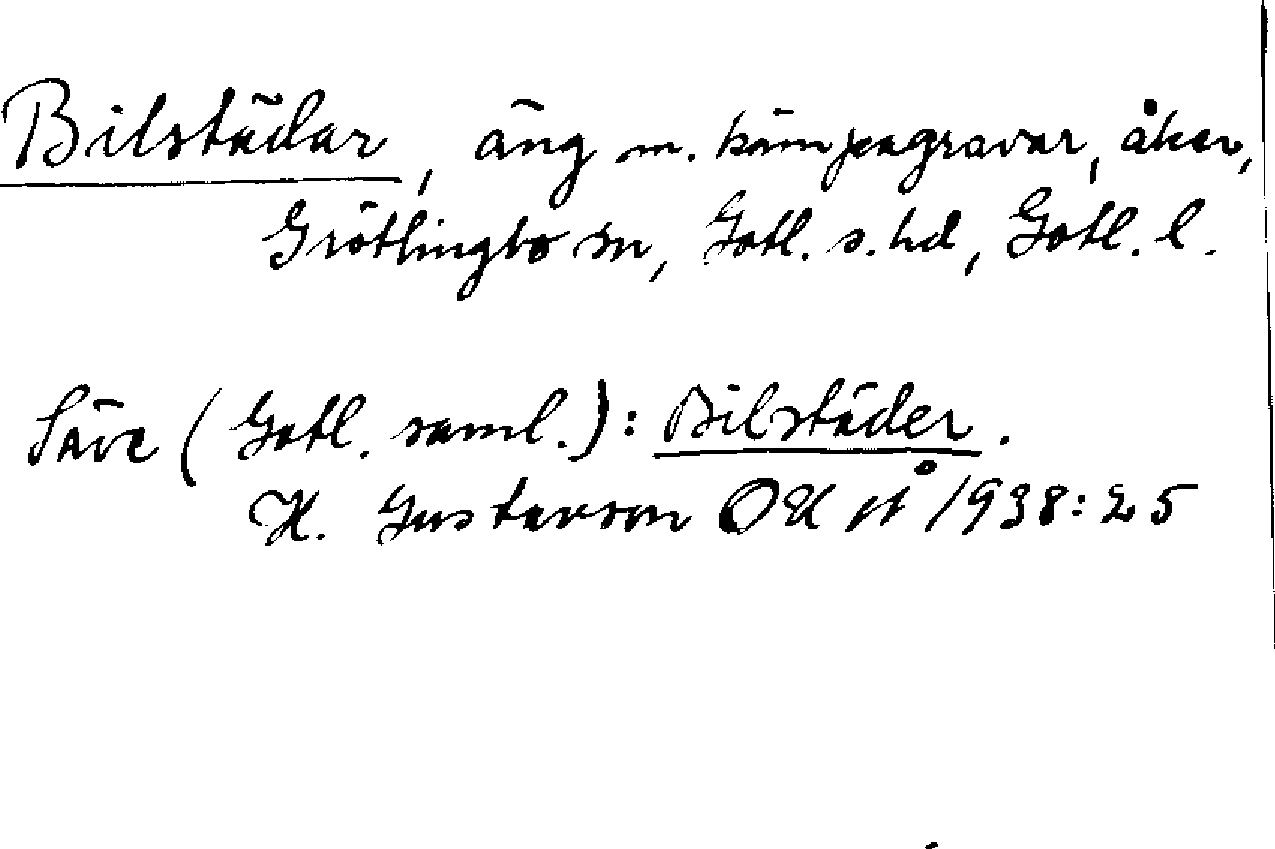 Bilstädar, äng m. kämpagravar, åker,
Grötlingbo sn, Gotl. s. hd, Gotl. l.
Säve (Gotl. saml.): Bilstäder.
H. Gustavson OUÅ 1938:25